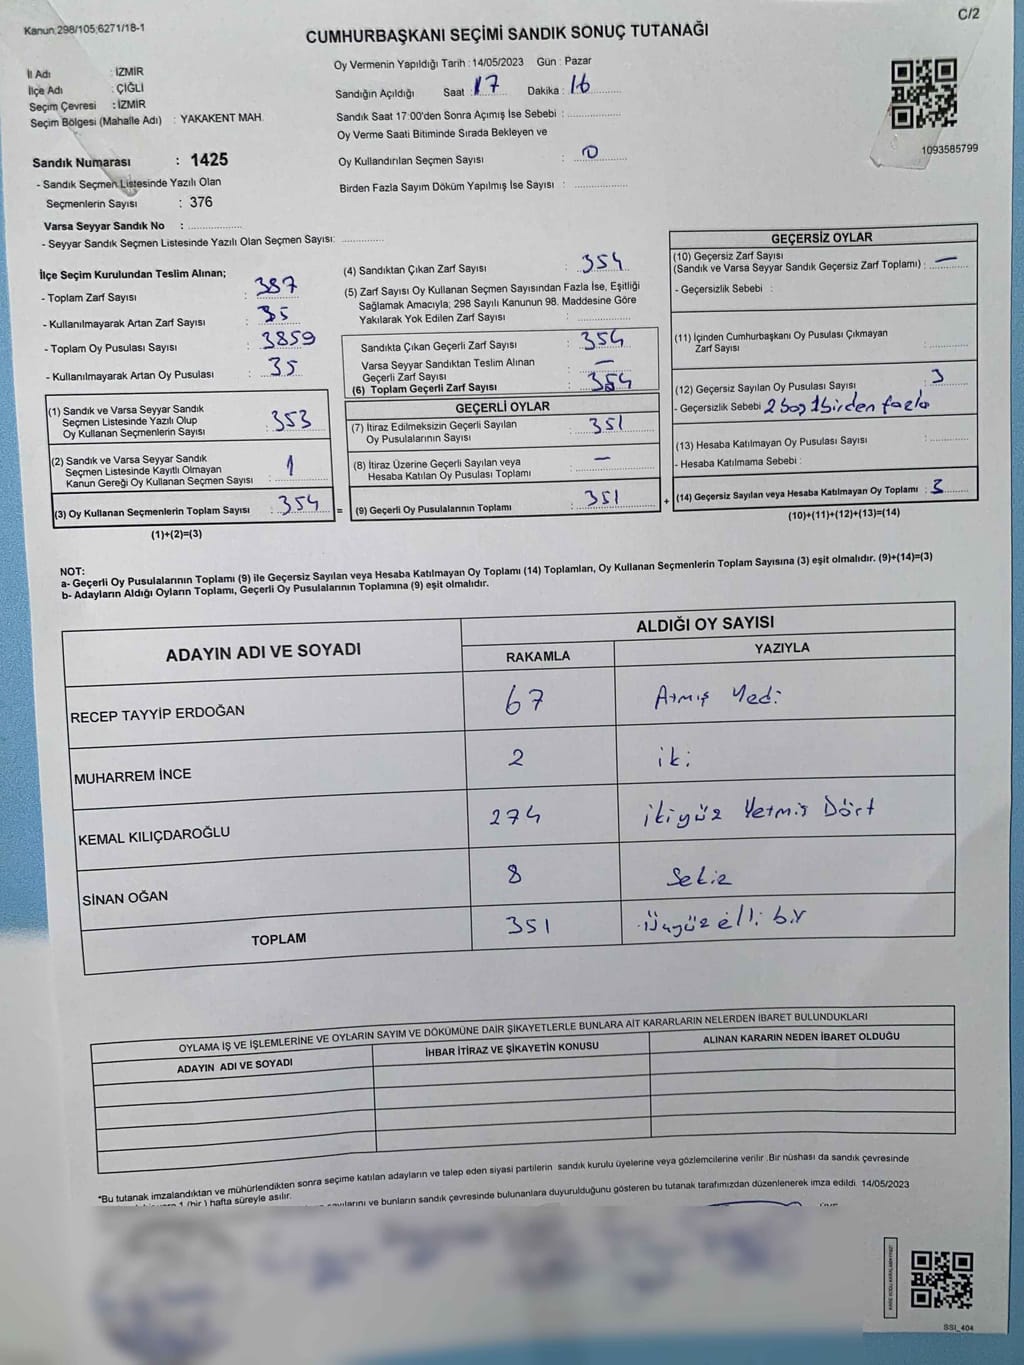 Kanun;298/105;6271/18-1
C/2
CUMHURBAŞKANI SEÇİMİ SANDIK SONUÇ TUTANAĞI
İl Adı : İZMİR
İlçe Adı : ÇİĞLİ
Seçim Çevresi : İZMİR
Seçim Bölgesi (Mahalle Adı) : YAKAKENT MAH.
Sandık Numarası : 1425
- Sandık Seçmen Listesinde Yazılı Olan
Seçmenlerin Sayısı : 376
Varsa Seyyar Sandık No : ..................
- Seyyar Sandık Seçmen Listesinde Yazılı Olan Seçmen Sayısı: ..............
Oy Vermenin Yapıldığı Tarih : 14/05/2023 Gün : Pazar
Sandığın Açıldığı Saat : 17 Dakika : 16
Sandık Saat 17:00'den Sonra Açımış İse Sebebi : ..................
Oy Verme Saati Bitiminde Sırada Bekleyen ve
Oy Kullandırılan Seçmen Sayısı : 0
Birden Fazla Sayım Döküm Yapılmış İse Sayısı : ..................
1093585799
İlçe Seçim Kurulundan Teslim Alınan;
- Toplam Zarf Sayısı : 387
- Kullanılmayarak Artan Zarf Sayısı : 35
- Toplam Oy Pusulası Sayısı : 3859
- Kullanılmayarak Artan Oy Pusulası : 35
(1) Sandık ve Varsa Seyyar Sandık
Seçmen Listesinde Yazılı Olup
Oy Kullanan Seçmenlerin Sayısı : 353
(2) Sandık ve Varsa Seyyar Sandık
Seçmen Listesinde Kayıtlı Olmayan
Kanun Gereği Oy Kullanan Seçmen Sayısı : 1
(3) Oy Kullanan Seçmenlerin Toplam Sayısı : 354
(1)+(2)=(3)
=
(4) Sandıktan Çıkan Zarf Sayısı : 354
(5) Zarf Sayısı Oy Kullanan Seçmen Sayısından Fazla İse, Eşitliği
Sağlamak Amacıyla; 298 Sayılı Kanunun 98. Maddesine Göre
Yakılarak Yok Edilen Zarf Sayısı : ..................
Sandıkta Çıkan Geçerli Zarf Sayısı : 354
Varsa Seyyar Sandıktan Teslim Alınan
Geçerli Zarf Sayısı : —
(6) Toplam Geçerli Zarf Sayısı : 354
GEÇERLİ OYLAR
(7) İtiraz Edilmeksizin Geçerli Sayılan
Oy Pusulalarının Sayısı : 351
(8) İtiraz Üzerine Geçerli Sayılan veya
Hesaba Katılan Oy Pusulası Toplamı : —
(9) Geçerli Oy Pusulalarının Toplamı : 351
+
GEÇERSİZ OYLAR
(10) Geçersiz Zarf Sayısı
(Sandık ve Varsa Seyyar Sandık Geçersiz Zarf Toplamı) : —
- Geçersizlik Sebebi :
(11) İçinden Cumhurbaşkanı Oy Pusulası Çıkmayan
Zarf Sayısı : ..............
(12) Geçersiz Sayılan Oy Pusulası Sayısı : 3
- Geçersizlik Sebebi : 2 boş 1 birden fazla
(13) Hesaba Katılmayan Oy Pusulası Sayısı : ..............
- Hesaba Katılmama Sebebi :
(14) Geçersiz Sayılan veya Hesaba Katılmayan Oy Toplamı : 3
(10)+(11)+(12)+(13)=(14)
NOT:
a- Geçerli Oy Pusulalarının Toplamı (9) ile Geçersiz Sayılan veya Hesaba Katılmayan Oy Toplamı (14) Toplamları, Oy Kullanan Seçmenlerin Toplam Sayısına (3) eşit olmalıdır. (9)+(14)=(3)
b- Adayların Aldığı Oyların Toplamı, Geçerli Oy Pusulalarının Toplamına (9) eşit olmalıdır.
ADAYIN ADI VE SOYADI
ALDIĞI OY SAYISI
RAKAMLA YAZIYLA
RECEP TAYYİP ERDOĞAN 67 Atmış Yedi
MUHARREM İNCE 2 iki
KEMAL KILIÇDAROĞLU 274 ikiyüz Yetmiş Dört
SİNAN OĞAN 8 Sekiz
TOPLAM 351 Üçyüz elli bir
OYLAMA İŞ VE İŞLEMLERİNE VE OYLARIN SAYIM VE DÖKÜMÜNE DAİR ŞİKAYETLERLE BUNLARA AİT KARARLARIN NELERDEN İBARET BULUNDUKLARI
ADAYIN ADI VE SOYADI İHBAR İTİRAZ VE ŞİKAYETİN KONUSU ALINAN KARARIN NEDEN İBARET OLDUĞU
*Bu tutanak imzalandıktan ve mühürlendikten sonra seçime katılan adayların ve talep eden siyasi partilerin sandık kurulu üyelerine veya gözlemcilerine verilir .Bir nüshası da sandık çevresinde
1 (bir ) hafta süreyle asılır.
ve bunların sandık çevresinde bulunanlara duyurulduğunu gösteren bu tutanak tarafımızdan düzenlenerek imza edildi. 14/05/2023
SSI_404